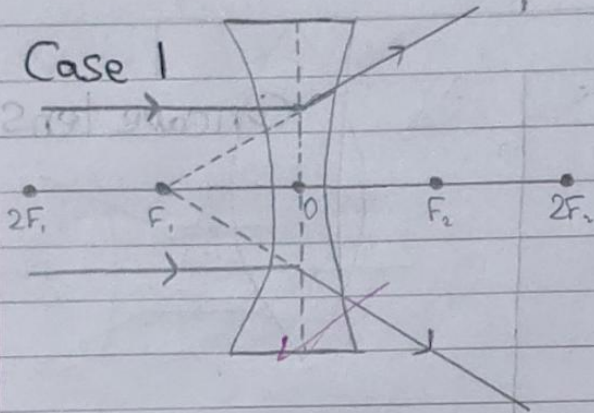 Case 1
2F₁ F₁ O F₂ 2F₂